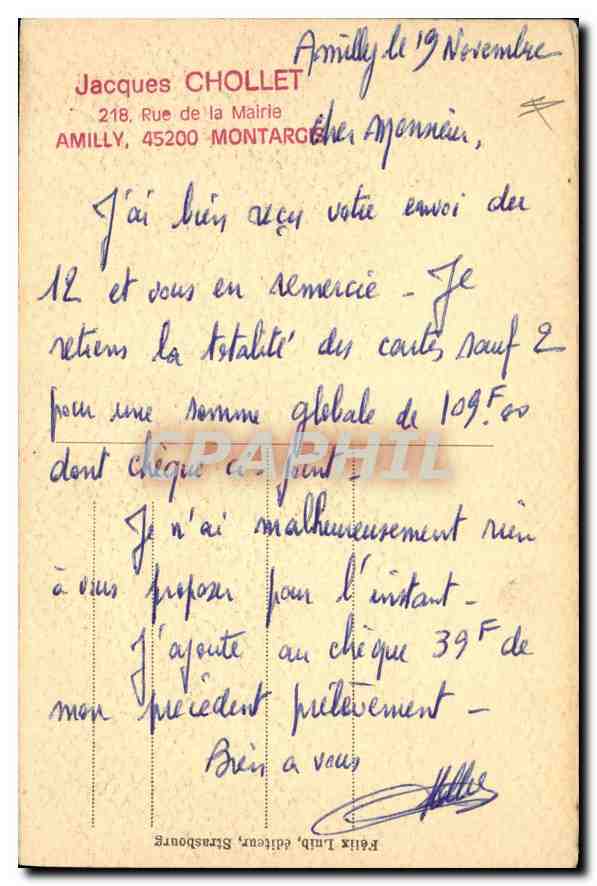 Amilly le 19 Novembre
Jacques CHOLLET
218, Rue de la Mairie
AMILLY, 45200 MONTARGIS
Cher Monsieur,
J'ai bien reçu votre envoi du
12 et vous en remercie - Je
retiens la totalité des cartes sauf 2
pour une somme globale de 109.F00
dont chèque ci joint -
CPAPHIL
Je n'ai malheureusement rien
à vous proposer pour l'instant -
J'ajoute au chèque 39F de
mon précédent prélèvement -
Bien a vous
Félix Luib, éditeur, Strasbourg